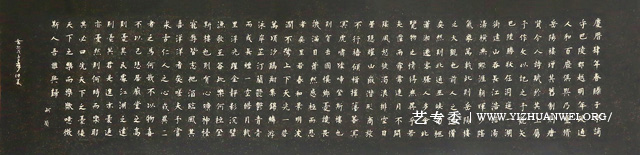 慶曆肆年春滕子京謫
守巴陵郡越明年政通
人和百廢俱興乃重修
岳陽樓增其舊制刻唐
賢今人詩賦於其上屬
予作文以記之予觀夫
巴陵勝狀在洞庭一湖
銜遠山吞長江浩浩湯
湯橫無際涯朝暉夕陰
氣象萬千此則岳陽樓
之大觀也前人之述備
矣然則北通巫峽南極
瀟湘遷客騷人多會於此
覽物之情得無異乎若
夫霪雨霏霏連月不開
陰風怒號濁浪排空日
星隱耀山岳潛形商旅
不行檣傾楫摧薄暮冥
冥虎嘯猿啼登斯樓也
則有去國懷鄉憂讒畏
譏滿目蕭然感極而悲
者矣至若春和景明波
瀾不驚上下天光一碧
萬頃沙鷗翔集錦鱗游
泳岸芷汀蘭郁郁青青
而或長煙一空皓月千
里浮光躍金靜影沉璧
漁歌互答此樂何極登
斯樓也則有心曠神怡
寵辱皆忘把酒臨風其
喜洋洋者矣嗟夫予嘗
求古仁人之心或異二
者之為何哉不以物喜
不以己悲居廟堂之高
則憂其民處江湖之遠
則憂其君是進亦憂退
亦憂然則何時而樂耶
其必曰先天下之憂
天下之樂而樂歟噫微
斯人吾誰與歸
艺专委
WWW.YIZHUANWEI.ORG/